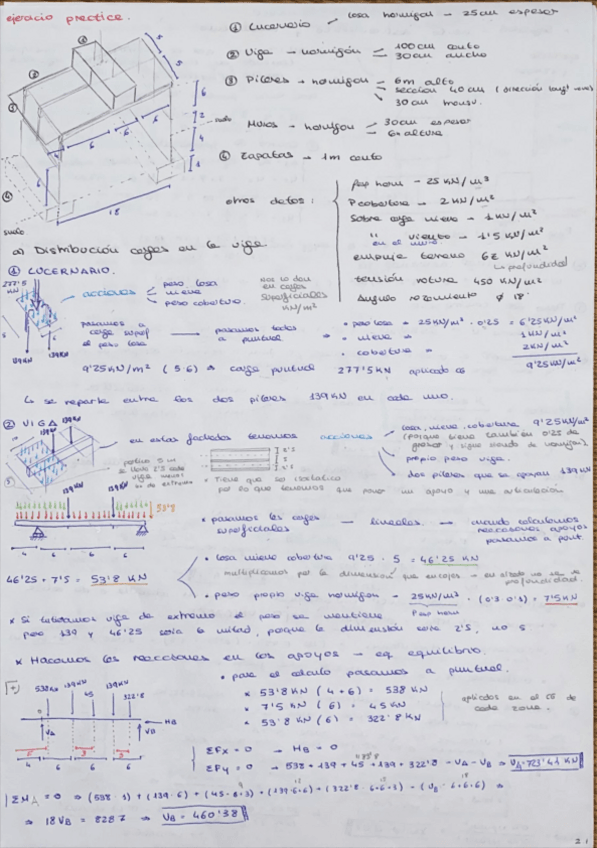 ejercicio practico.
① Lucernario - losa hormigon - 25 cm espesor
② Viga - hormigón - 100 cm canto
30 cm ancho
③ Pilares - hormigon - 6m alto
sección 40 cm
30 cm
Muros - hormigon - 30 cm espesor
6m altura
④ Zapatas - 1m canto
otros datos:
Pesp horm - 25 KN/m³
P cobertura - 2 KN/m²
Sobre carga nieve - 1 KN/m²
" viento - 1'5 KN/m²
en el muro.
empuje terreno 6z KN/m²
profundidad
tensión rotura 450 KN/m²
Angulo rozamiento ∅ 18º
suelo
18
a) Distribución cargas en la viga
① LUCERNARIO.
277'5 KN
139KN 139KN
acciones
peso losa
nieve
peso cobertura
nos lo dan en cargas superficiales KN/m²
pasamos a carga superf el peso losa
pasamos todas a puntual
• peso losa = 25KN/m³ · 0'25 = 6'25KN/m²
• nieve = 1KN/m²
• cobertura = 2KN/m²
9'25KN/m²
9'25KN/m² (5·6) = carga puntual 277'5KN aplicado
↳ se reparte entre los dos pilares 139KN en cada uno.
② VIGA
139KN
en estas fachadas tenemos
acciones
losa, nieve, cobertura 9'25KN/m²
propio peso viga.
dos pilares que se apoyan 139KN
• Tiene que ser isostatica
por lo que tenemos que poner un apoyo y una articulación
139KN 139KN
53'8
4 6 6 6
• pasamos las cargas superficiales - lineales. - cuando calculemos reacciones apoyos pasamos a punt.
46'25 + 7'5 = 53'8 KN
• losa nieve cobertura 9'25 · 5 = 46'25 KN
multiplicamos por la dimensión que
profundidad.
• peso propio viga hormigon = 25KN/m³ · (0'3·0'3) = 7'5KN
Pesp horm
* Si tuvieramos viga de extremo el peso se mantiene
pero 139 y 46'25 seria la mitad, porque la dimensión seria 2'5, no 5
* Hacemos las reacciones en los apoyos - eq. equilibrio.
• para el calculo pasamos a puntual.
538KN 139KN 45 139KN 322'8
* 53'8KN (4+6) = 538 KN
* 7'5KN (6) = 45KN
* 53'8KN (6) = 322'8KN
aplicados en el CG de cada zona.
HB
VA VB
5 3 3
4 6 6 6
ΣFx = 0 → HB = 0
ΣFy = 0 → 538 + 139 + 45 + 139 + 322'8 - VA - VB = VA = 723'41 KN
ΣMA = 0 ⇒ (538·1) + (139·6) + (45·6+3) + (139·6+6) + (322'8·6+6+3) - (VB·6+6+6) ⇒
⇒ 18VB = 8287 ⇒ VB = 460'38
21